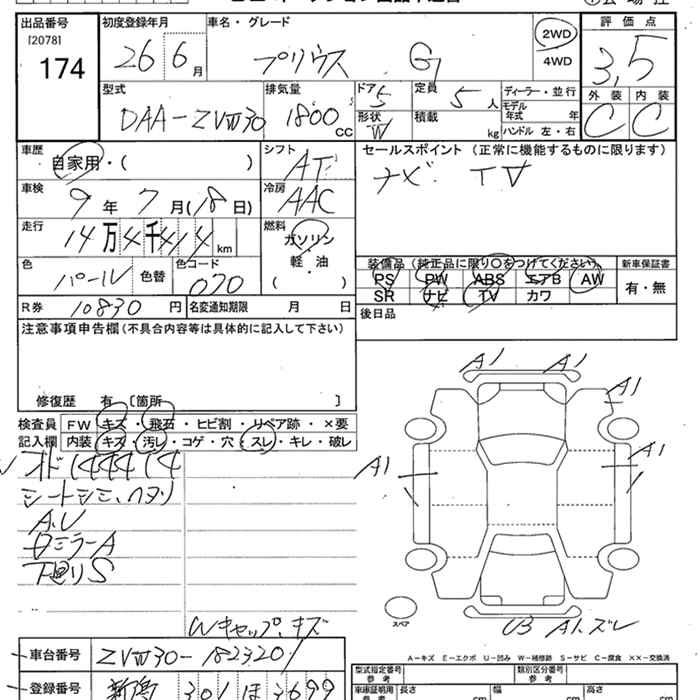 出品番号
[2078]
174
初度登録年月
26 6 月
車名・グレード
プリウス G
2WD
4WD
評価点
3,5
外装 内装
C C
型式
DAA-ZVW30
排気量
1800 CC
ドア 5
形状 W
定員 5 人
積載 kg
ディーラー・並行
モデル年式 年
ハンドル 左・右
車歴
自家用・( )
シフト
AT
セールスポイント (正常に機能するものに限ります)
ナビ TV
車検
9 年 7 月(18 日)
冷房
AAC
走行
14 万 4 千 414 km
燃料
ガソリン
軽・油
( ・ )
色
パール
色替
色コード
070
装備品(純正品に限り○をつけてください)
新車保証書
PS PW ABS エアB AW
SR ナビ TV カワ
有・無
R券 10830 円
名変通知期限 月 日
後日品
注意事項申告欄(不具合内容等は具体的に記入して下さい)
修復歴 有 [箇所 ]
検査員
記入欄
FW キズ・飛石・ヒビ割・リペア跡・×要
内装 キズ・汚レ・コゲ・穴・スレ・キレ・破レ
オド144414
シートシミ、ヘタリ
A.U
ミラーA
下廻りS
Wキャップ、キズ
A1 A1
A1
A1 A1
U3 A1.ズレ
スペア
A-キズ E-エクボ U-凹み W-補修跡 S-サビ C-腐食 ××-交換済
車台番号 ZVW30-1823201
登録番号 新潟 301 ほ 3699
型式指定番号
参考
類別区分番号
車庫証明用
参考
長さ cm
幅 cm
高さ cm